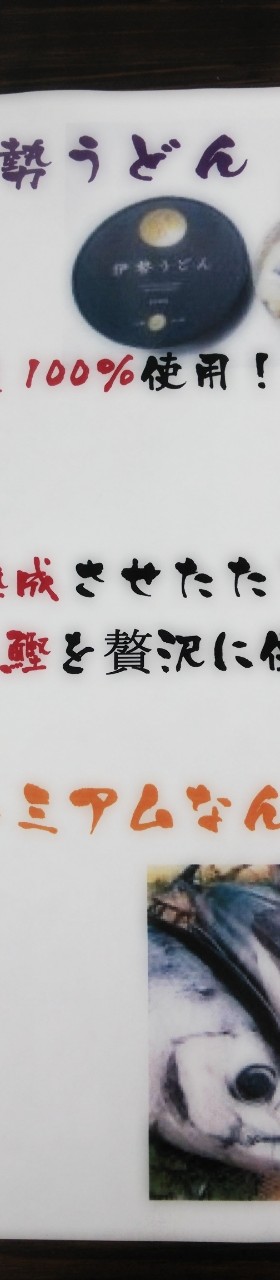 勢うどん
伊勢うどん
100%使用！
成させたた
鰹を贅沢に
ミアムなん